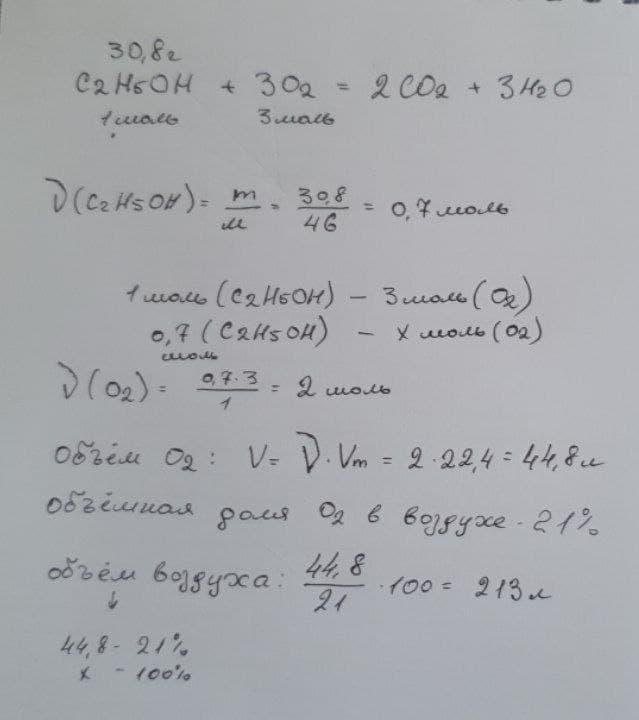 30,8г
C2H5OH + 3O2 = 2CO2 + 3H2O
1моль 3моль
ν(C2H5OH) = m/M = 30,8/46 = 0,7 моль
1 моль (C2H5OH) – 3 моль (O2)
0,7 (C2H5OH) – x моль (O2)
моль
ν(O2) = 0,7·3/1 = 2 моль
Объём O2: V = ν·Vm = 2·22,4 = 44,8 л
объёмная доля O2 в воздухе - 21%
объём воздуха: 44,8/21 ·100 = 213 л
↓
44,8 - 21%
x - 100%